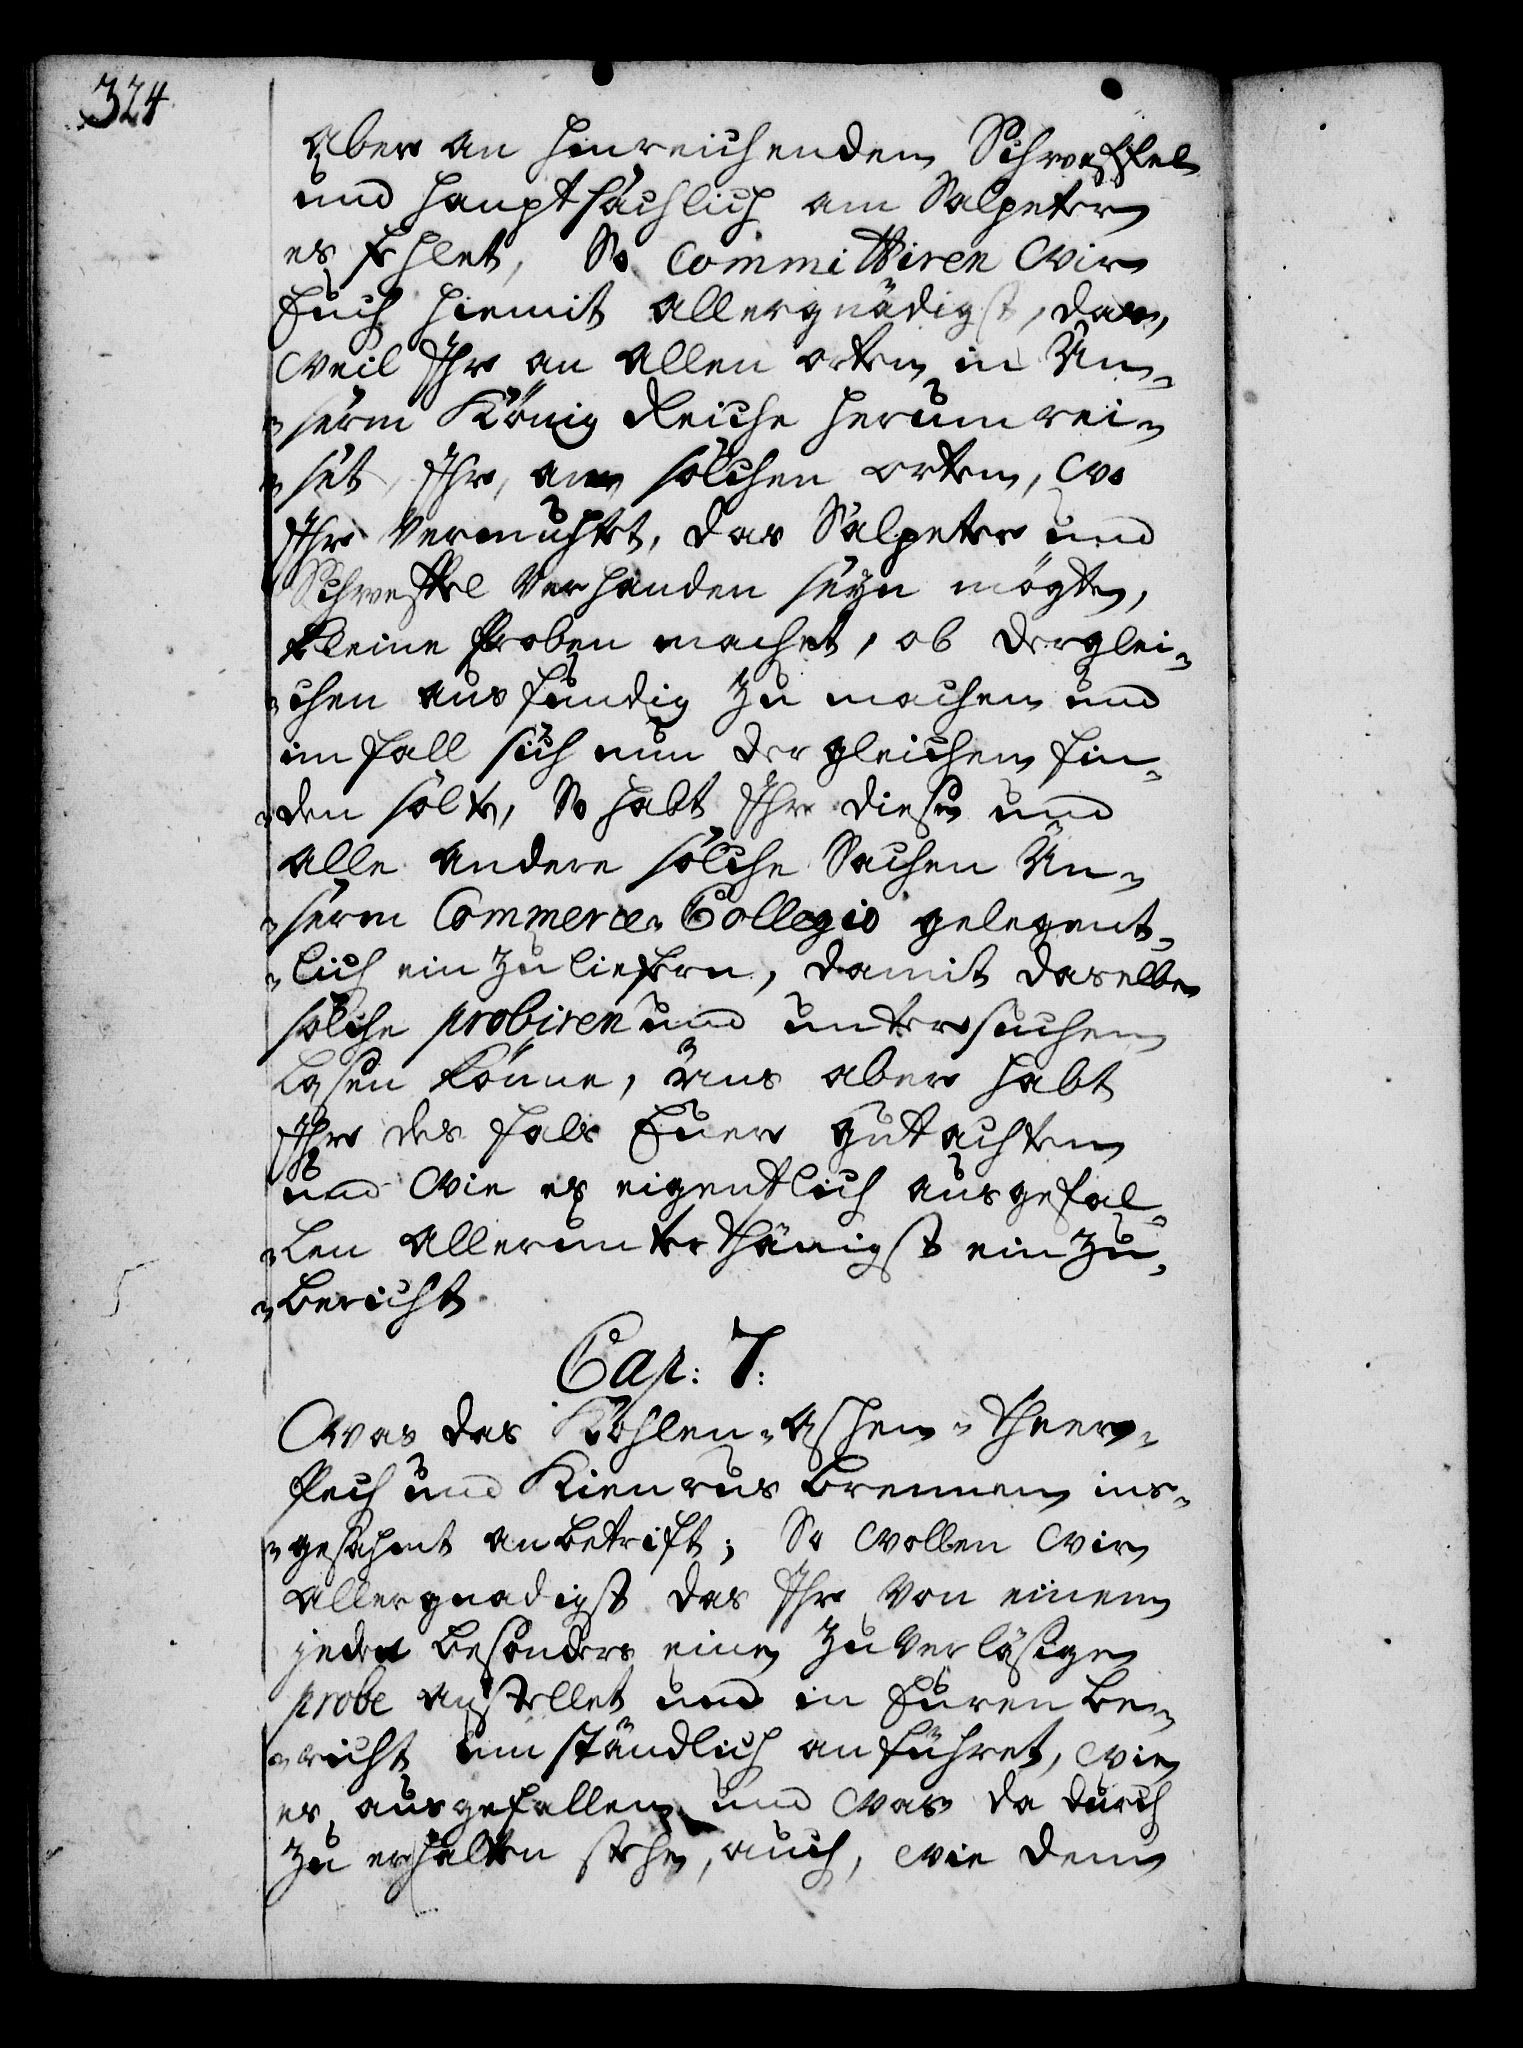 324
aber an hinreichendem Schweffel
und hauptsächlich am Salpeter
es fehlet, So Committiren Wir
Euch hiemit allergnädigst, das,
weil Ihr an allen orten in Un-
-serm König Reiche herum rei-
-set, Ihr, an solchen orten, wo
Ihr vermuhtet, das Salpeter und
Schweffel verhanden seyn mögte,
kleine Proben machet, ob derglei-
-chen ausfündig zu machen und
im fall sich nun dergleichen fin-
-den solte, So habt Ihr diese und
alle andere solche Sachen Un-
-serm Commerce-Collegio gelegent-
-lich ein zu liefern, damit daselbe
solche probiren und untersuchen
lasen könne, Uns aber habt
Ihr des fals Euer gutachten
und wie es eigentlich ausgefal-
-len allerunterthänigst ein zu-
-bericht.
Cap: 7:
Was das Kohlen-Aschen-Theer-
Pech und Kienrus brennen ins-
-gesahmt anbetrift; So wollen Wir
allergnadigst das Ihr von einem
jeden besonders eine zuverläsige
probe anstellet und in Euren be-
-richt umständlich anführet, wie
es ausgefallen und was da durch
zu erhalten stehe, auch, wie dem